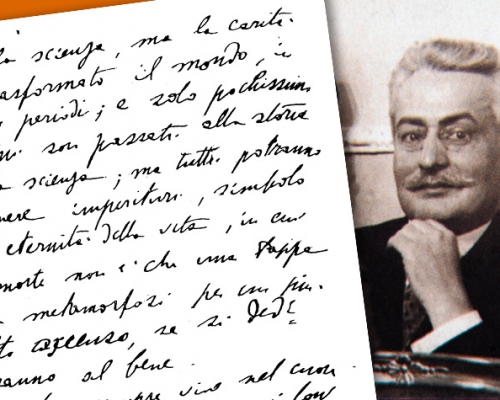 la scienza, ma la carità
trasformato il mondo, in
periodi; e solo pochissimi
son passati alla storia
scienza; ma tutti potranno
imperituri, simbolo
eternità della vita, in cui
morte non è che una tappa
metamorfosi per un più
ascenso, se si ded
ranno al bene.
sempre vivo nel cuore